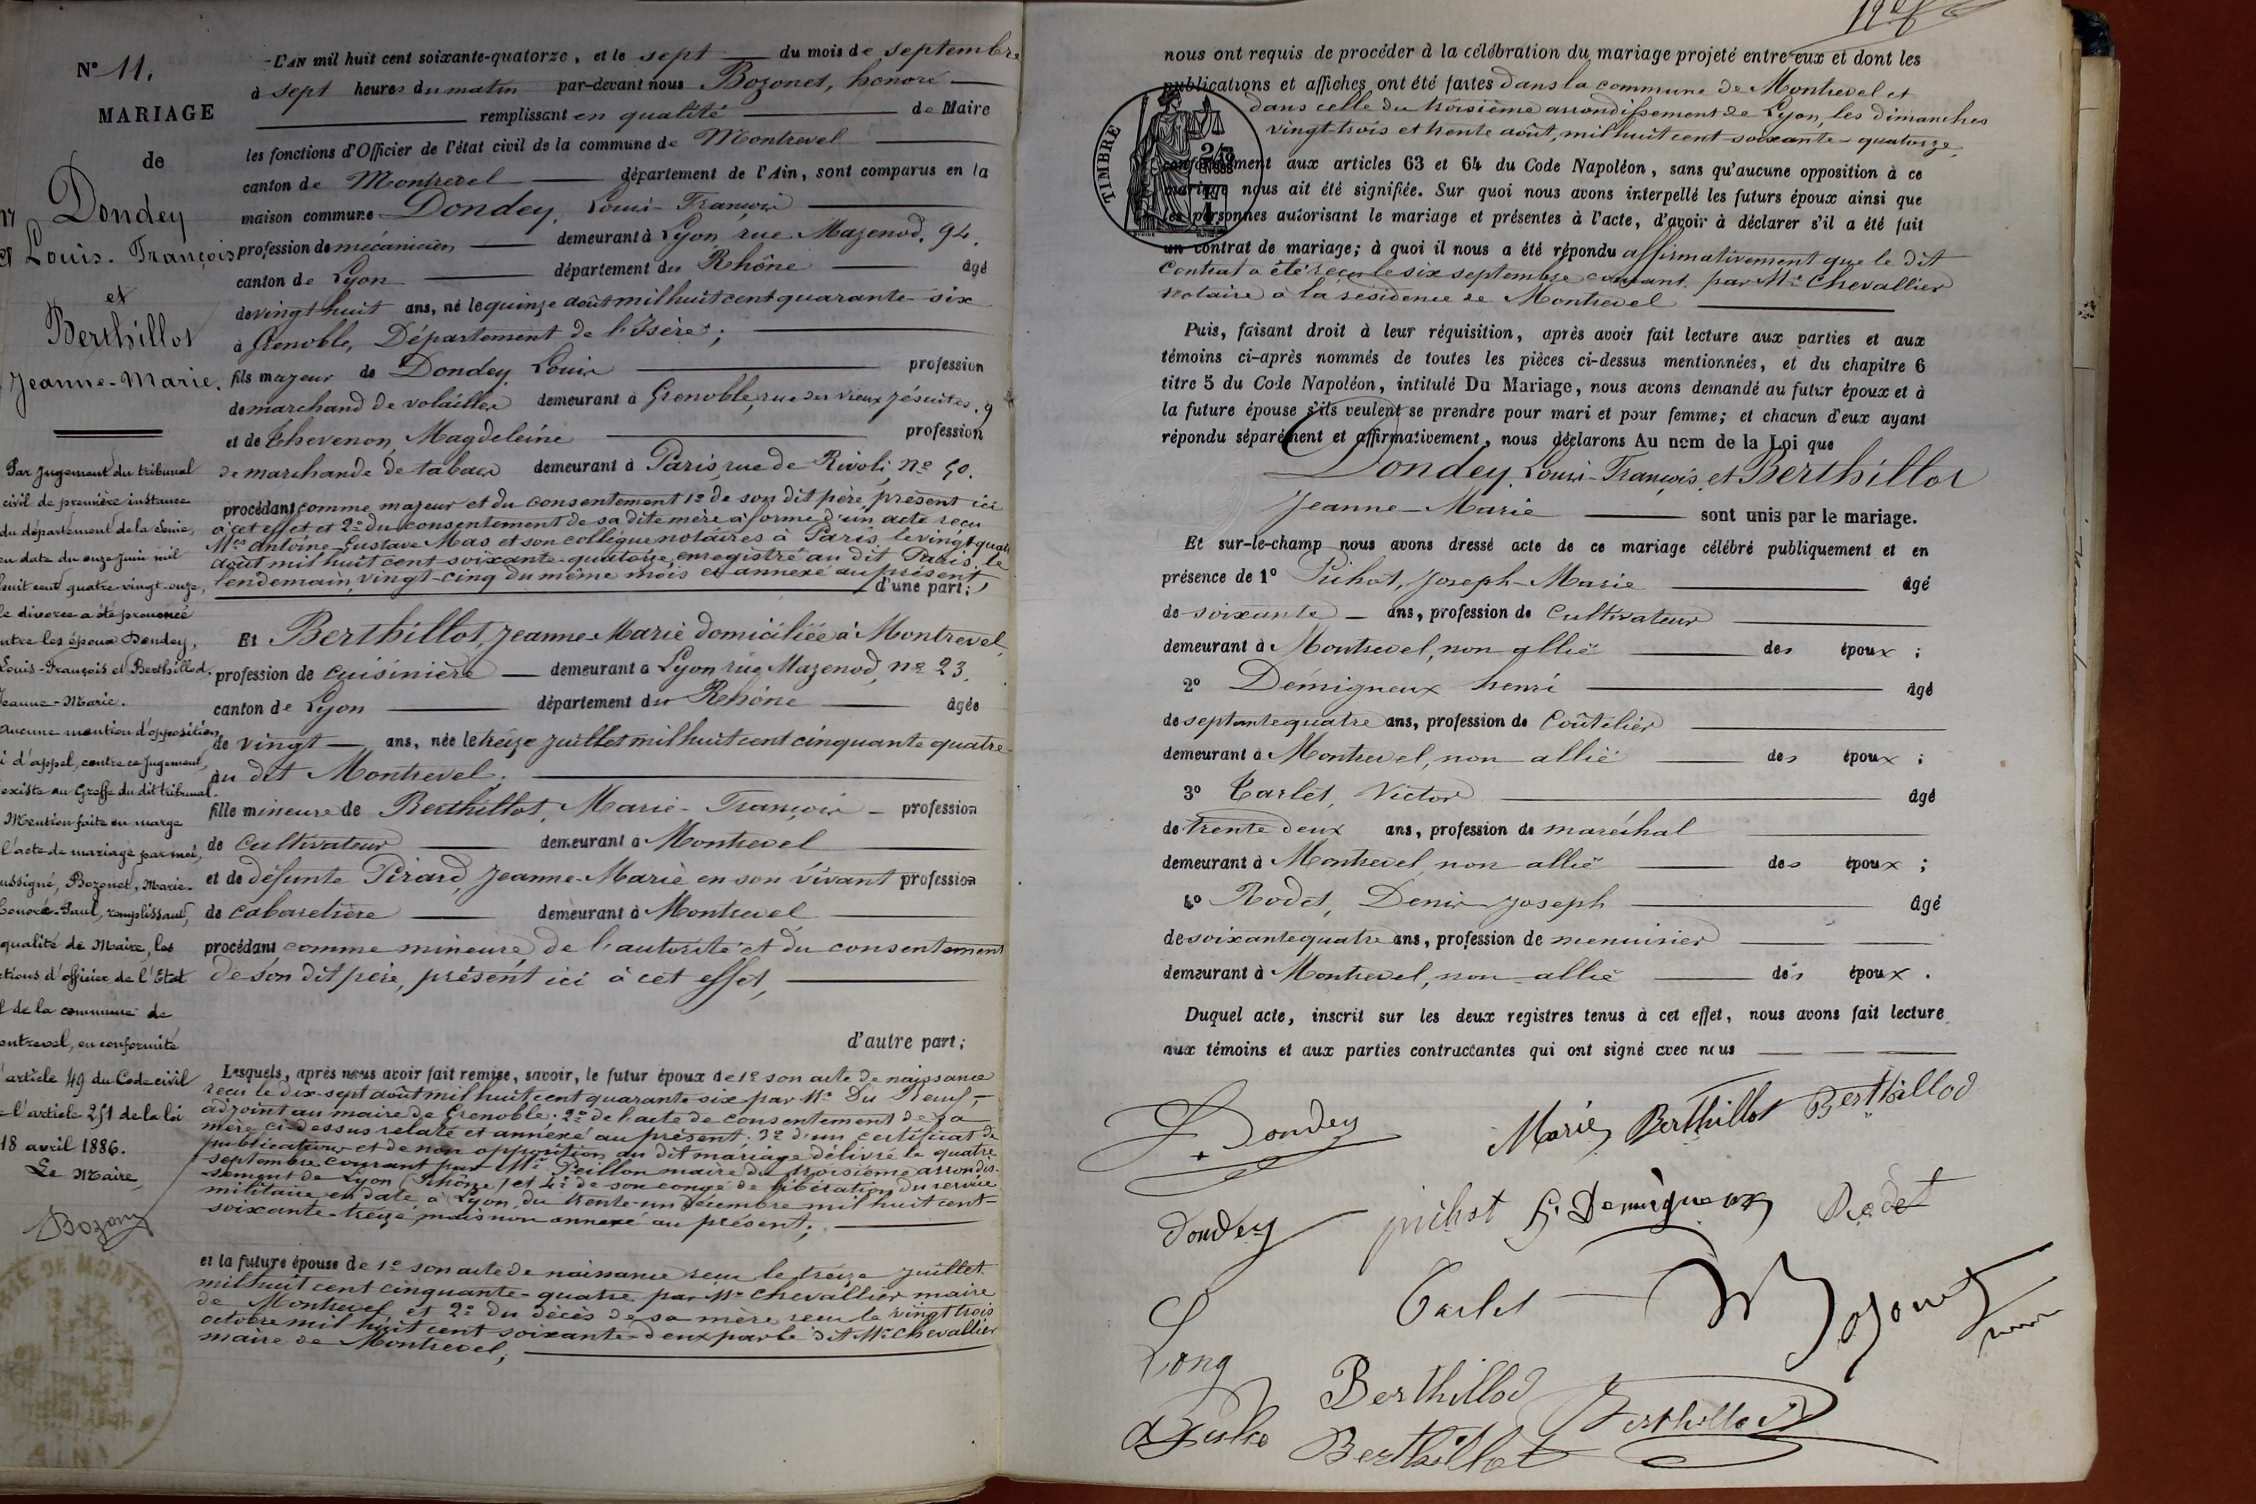 N° 11.
MARIAGE
de
Dondey
Louis-François
et
Berthillot
Jeanne-Marie.
Par Jugement du tribunal
civil de première instance
du département de la Seine,
en date du onze juin mil
huit cent quatre-vingt-onze,
le divorce a été prononcé
entre les époux Dondey,
Louis-François et Berthillod,
Jeanne-Marie.
Aucune mention d'opposition
ni d'appel, contre ce jugement,
existe au Greffe du dit tribunal.
Mention faite en marge
l'acte de mariage par moi,
ussigné, Bozonet, Marie-
honoré-Paul, remplissant,
qualité de Maire, les
ctions d'officier de l'Etat
l de la commune de
ontrevel, en conformité
l'article 49 du Code civil
l'article 251 de la loi
18 avril 1886.
Le Maire,
Bozonet
L'AN mil huit cent soixante-quatorze, et le sept du mois de septembre
à sept heures du matin par-devant nous Bozonet, honoré
remplissant en qualité de Maire
les fonctions d'Officier de l'état civil de la commune de Montrevel
canton de Montrevel département de l'Ain, sont comparus en la
maison commune Dondey, Louis-François
profession de mécanicien demeurant à Lyon rue Mazenod, 94.
canton de Lyon département du Rhône âgé
de vingt huit ans, né le quinze août mil huit cent quarante-six
à Grenoble, Département de l'Isère;
fils majeur de Dondey Louis profession
de marchand de volailles demeurant à Grenoble, rue des Vieux Jésuites, 9
et de Thevenon, Magdeleine profession
de marchande de tabacs demeurant à Paris, rue de Rivoli, N° 50.
procédant comme majeur et du consentement 1° de son dit père, présent ici
à cet effet et 2° du consentement de sa dite mère à forme d'un acte reçu
Mes Antoine-Gustave Mas et son collègue notaires à Paris, le vingt-quatre
août mil huit cent soixante-quatorze, enregistré au dit Paris, le
lendemain, vingt-cinq du même mois et annexé au présent
d'une part;
Et Berthillot, Jeanne-Marie domiciliée à Montrevel
profession de cuisinière demeurant à Lyon rue Mazenod, n° 23.
canton de Lyon département du Rhône âgée
de vingt ans, née le treize juillet mil huit cent cinquante quatre
au dit Montrevel.
fille mineure de Berthillot, Marie-François profession
de cultivateur demeurant à Montrevel
et de défunte Pirard, Jeanne-Marie en son vivant profession
de cabaretière demeurant à Montrevel
procédant comme mineure, de l'autorité et du consentement
de son dit père, présent ici à cet effet,
d'autre part;
Lesquels, après nous avoir fait remise, savoir, le futur époux de 1° son acte de naissance
reçu le dix-sept août mil huit cent quarante six par Mr Du
adjoint au maire de Grenoble; 2° de l'acte de consentement de sa
mère ci-dessus relaté et annexé au présent; 3° d'un certificat de
publications et de non opposition au dit mariage délivré le quatre
septembre courant par Mr Peillon maire du troisième arrondis-
sement de Lyon (Rhône) et 4° de son congé de libération du service
militaire en date à Lyon, du trente-un décembre mil huit cent-
soixante-treize, mais non annexé au présent;
et la future épouse de 1° son acte de naissance reçu le treize juillet
mil huit cent cinquante-quatre par Mr Chevallier maire
de Montrevel et 2° du décès de sa mère reçu le vingt trois
octobre mil huit cent soixante-deux par le dit Mr Chevallier
maire de Montrevel;
nous ont requis de procéder à la célébration du mariage projeté entre eux et dont les
publications et affiches ont été faites dans la commune de Montrevel et
dans celle du troisième arrondissement de Lyon, les dimanches
vingt-trois et trente août, mil huit cent soixante-quatorze,
TIMBRE
conformément aux articles 63 et 64 du Code Napoléon, sans qu'aucune opposition à ce
mariage nous ait été signifiée. Sur quoi nous avons interpellé les futurs époux ainsi que
les personnes autorisant le mariage et présentes à l'acte, d'avoir à déclarer s'il a été fait
un contrat de mariage; à quoi il nous a été répondu affirmativement que le dit
contrat a été reçu le six septembre courant par Mr Chevallier
notaire à la résidence de Montrevel
Puis, faisant droit à leur réquisition, après avoir fait lecture aux parties et aux
témoins ci-après nommés de toutes les pièces ci-dessus mentionnées, et du chapitre 6
titre 5 du Code Napoléon, intitulé Du Mariage, nous avons demandé au futur époux et à
la future épouse s'ils veulent se prendre pour mari et pour femme; et chacun d'eux ayant
répondu séparément et affirmativement, nous déclarons Au nom de la Loi que
Dondey Louis-François et Berthillot
Jeanne-Marie sont unis par le mariage.
Et sur-le-champ nous avons dressé acte de ce mariage célébré publiquement et en
présence de 1° Pichot, Joseph-Marie âgé
de soixante ans, profession de cultivateur
demeurant à Montrevel, non allié des époux;
2° Démigneux henri âgé
de septante quatre ans, profession de Coûtelier
demeurant à Montrevel, non allié des époux;
3° Carlet, Victor âgé
de trente deux ans, profession de maréchal
demeurant à Montrevel, non allié des époux;
4° Rodet, Denis-Joseph âgé
de soixante quatre ans, profession de menuisier
demeurant à Montrevel, non allié des époux.
Duquel acte, inscrit sur les deux registres tenus à cet effet, nous avons fait lecture
aux témoins et aux parties contractantes qui ont signé avec nous
L. Dondey Marie Berthillot Berthillod
Dondey pichot h. Demigneux Rodet
Carlet Bozonet
Long
Berthillod Berthillod
Berthillot